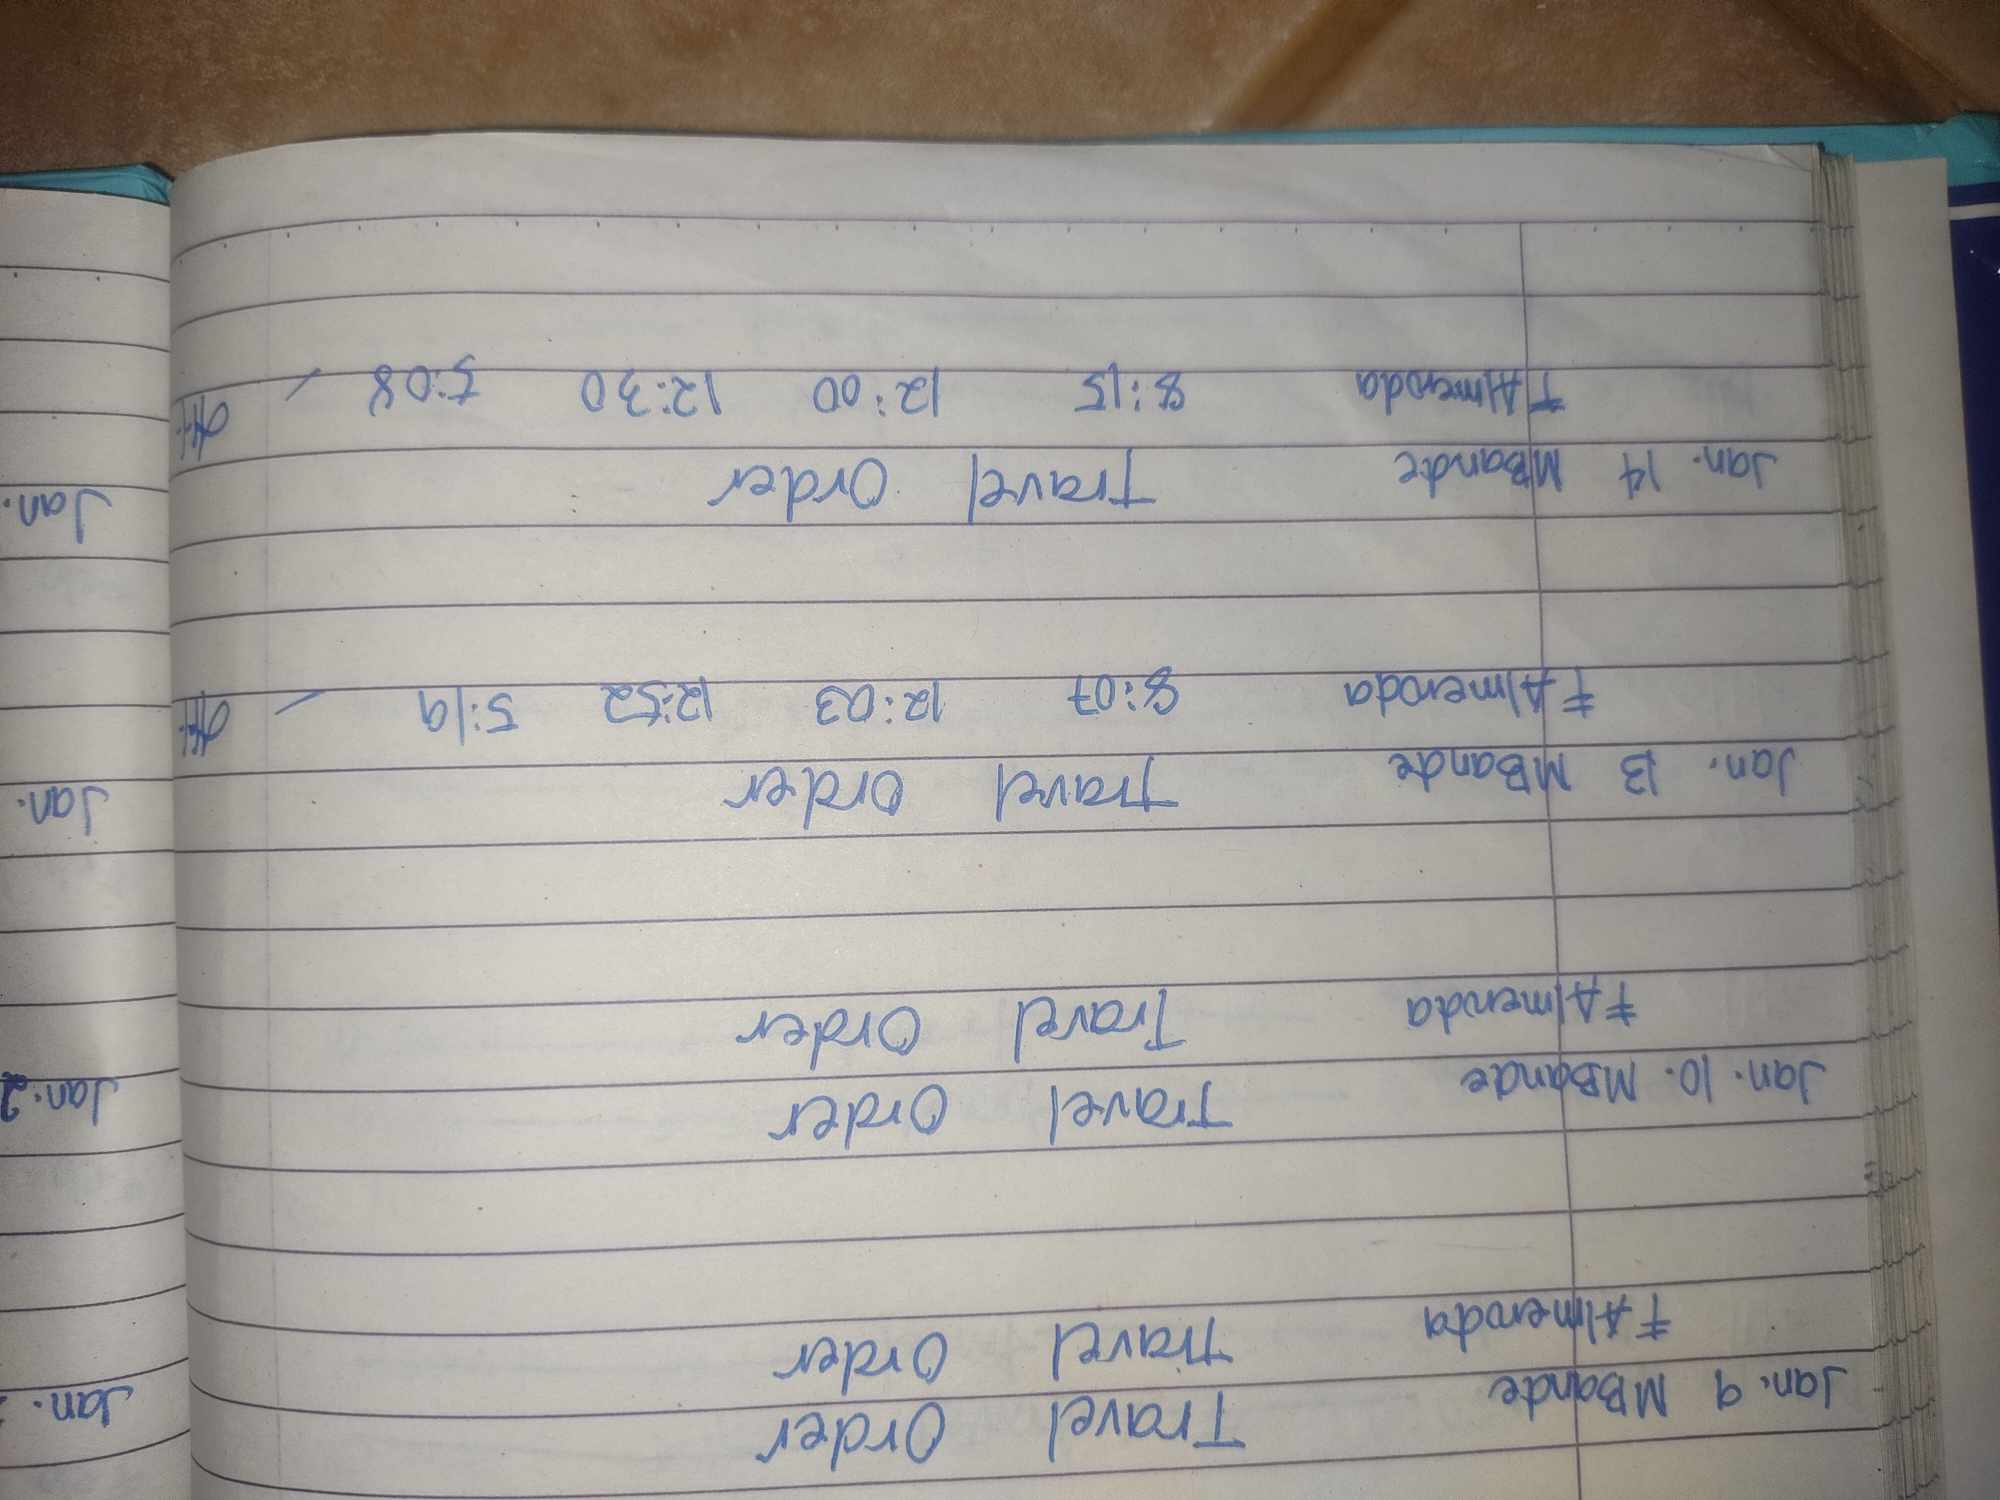 Jan. 9 MBande Travel Order
FAlmenda Travel Order
Jan. 10. MBande Travel Order
FAlmenda Travel Order
Jan. 13 MBande Travel Order
FAlmenda 8:07 12:03 12:52 5:19
Jan. 14 MBande Travel Order
FAlmenda 8:15 12:00 12:30 5:08
Jan.
Jan. 2
Jan.
Jan.